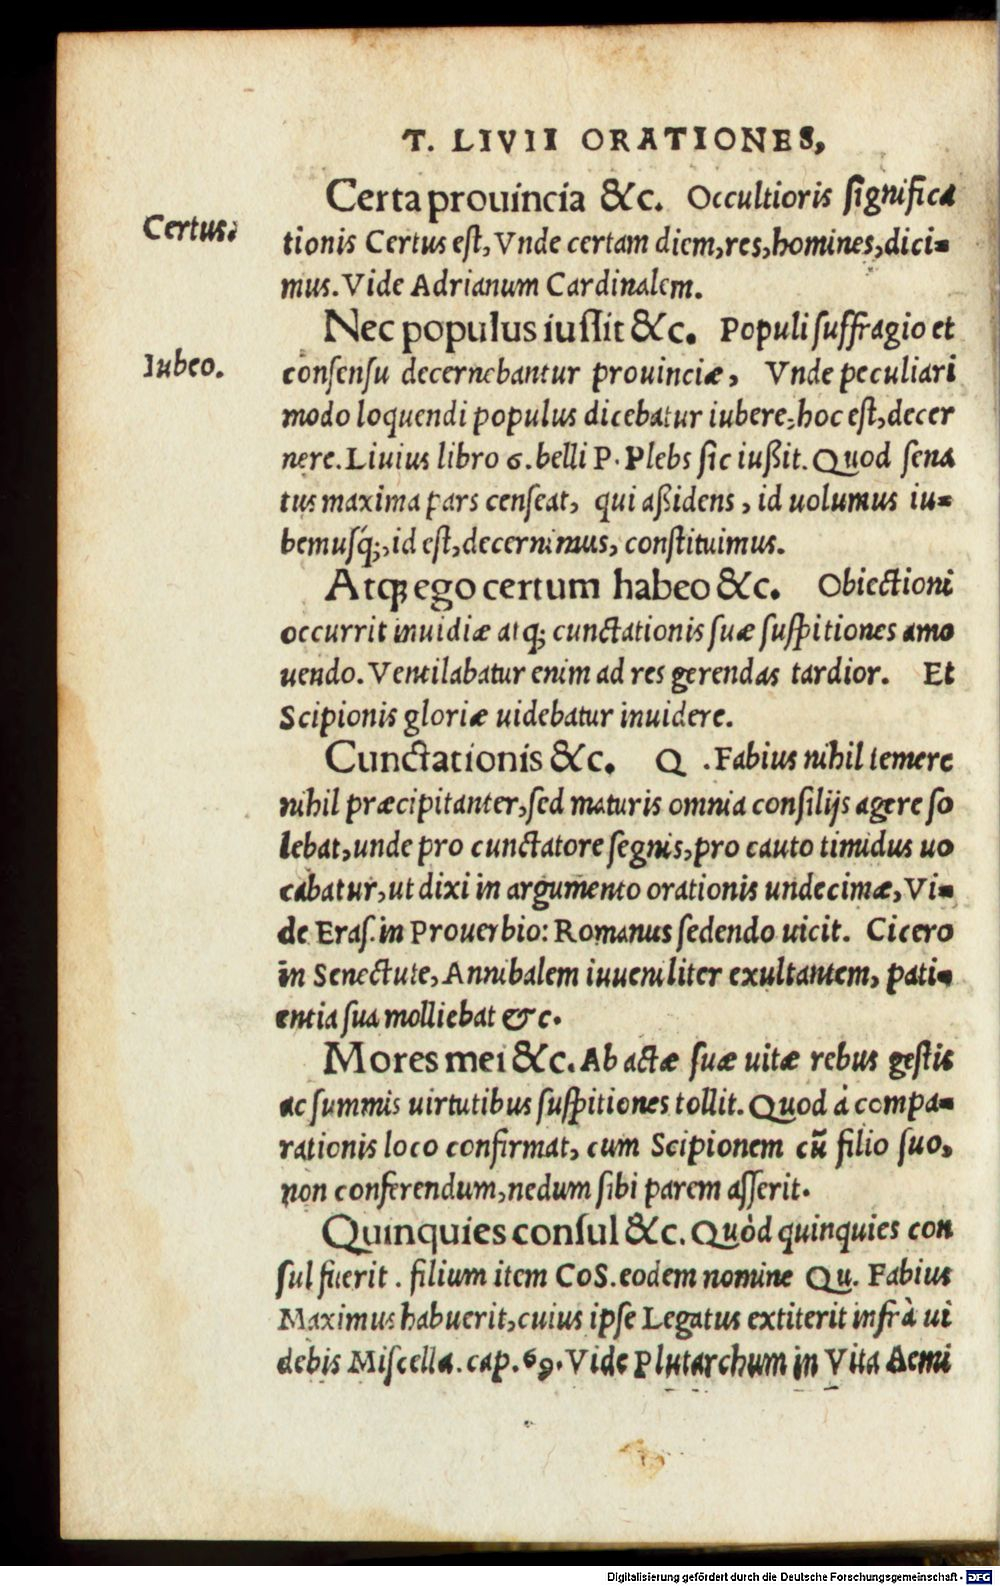 T. LIVII ORATIONES,
Certa prouincia &c. Occultioris significa
Certus.
tionis Certus est, Vnde certam diem, res, homines, dici=
mus. Vide Adrianum Cardinalem.
Nec populus iussit &c. Populi suffragio et
Iubeo.
consensu decernebantur prouinciæ, Vnde peculiari
modo loquendi populus dicebatur iubere, hoc est, decer
nere. Liuius libro 6. belli P. Plebs sic iußit. Quod sena
tus maxima pars censeat, qui aßidens, id uolumus iu=
bemusq́;, id est, decernimus, constituimus.
Atq; ego certum habeo &c. Obiectioni
occurrit inuidiæ atq; cunctationis suæ suspitiones amo
uendo. Ventilabatur enim ad res gerendas tardior. Et
Scipionis gloriæ uidebatur inuidere.
Cunctationis &c. Q. Fabius nihil temere
nihil præcipitanter, sed maturis omnia consilijs agere so
lebat, unde pro cunctatore segnis, pro cauto timidus uo
cabatur, ut dixi in argumento orationis undecimæ, Vi=
de Eras. in Prouerbio: Romanus sedendo uicit. Cicero
in Senectute, Annibalem iuueniliter exultantem, pati=
entia sua molliebat &c.
Mores mei &c. Ab actæ suæ uitæ rebus gestis
ac summis uirtutibus suspitiones tollit. Quod à compa=
rationis loco confirmat, cum Scipionem cū filio suo,
non conferendum, nedum sibi parem asserit.
Quinquies consul &c. Quòd quinquies con
sul fuerit. filium item CoS. eodem nomine Qu. Fabius
Maximus habuerit, cuius ipse Legatus extiterit infrà ui
debis Miscella. cap. 69. Vide Plutarchum in Vita Aemi
Digitalisierung gefördert durch die Deutsche Forschungsgemeinschaft - DFG